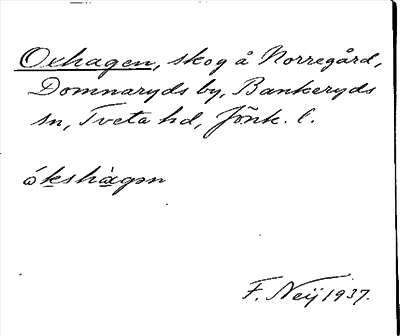 Oxhagen, skog å Norregård,
Domnaryds by, Bankeryds
sn, Tveta hd, Jönk. l.
ókshàgən
F. Neij 1937.